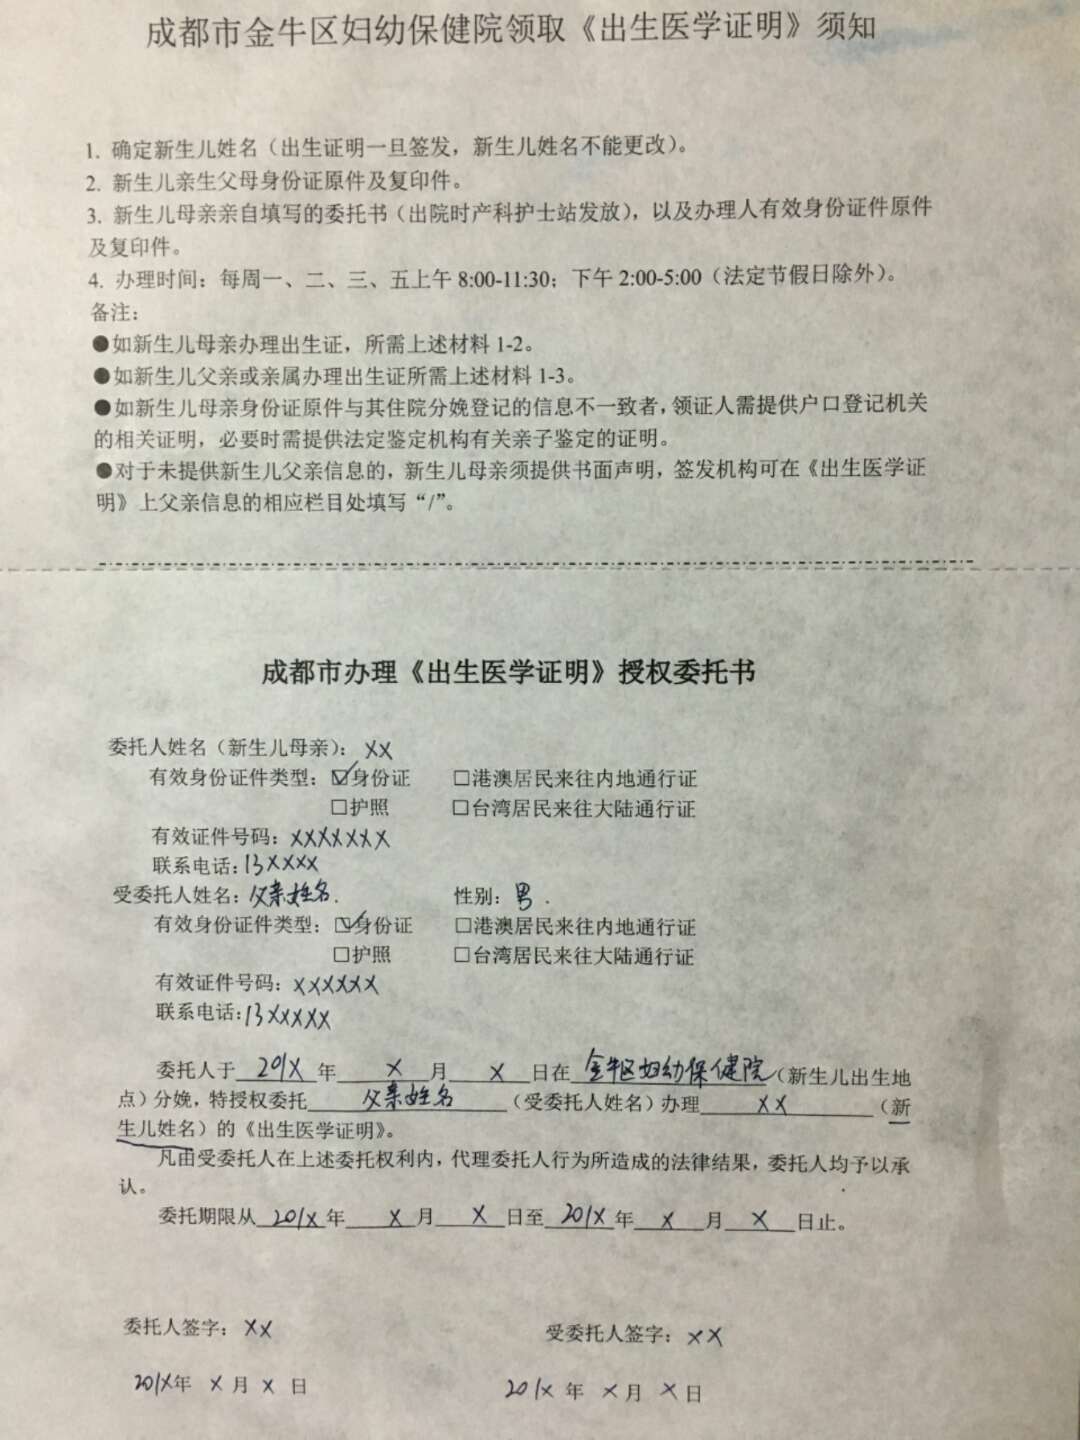 成都市金牛区妇幼保健院领取《出生医学证明》须知
1. 确定新生儿姓名（出生证明一旦签发，新生儿姓名不能更改）。
2. 新生儿亲生父母身份证原件及复印件。
3. 新生儿母亲亲自填写的委托书（出院时产科护士站发放），以及办理人有效身份证件原件
及复印件。
4. 办理时间：每周一、二、三、五上午 8:00-11:30；下午 2:00-5:00（法定节假日除外）。
备注：
●如新生儿母亲办理出生证，所需上述材料 1-2。
●如新生儿父亲或亲属办理出生证所需上述材料 1-3。
●如新生儿母亲身份证原件与其住院分娩登记的信息不一致者，领证人需提供户口登记机关
的相关证明，必要时需提供法定鉴定机构有关亲子鉴定的证明。
●对于未提供新生儿父亲信息的，新生儿母亲须提供书面声明，签发机构可在《出生医学证
明》上父亲信息的相应栏目处填写“/”。
成都市办理《出生医学证明》授权委托书
委托人姓名（新生儿母亲）：XX
有效身份证件类型：☑身份证 □港澳居民来往内地通行证
□护照 □台湾居民来往大陆通行证
有效证件号码：XXXXXXX
联系电话：13XXXX
受委托人姓名：父亲姓名. 性别：男.
有效身份证件类型：☑身份证 □港澳居民来往内地通行证
□护照 □台湾居民来往大陆通行证
有效证件号码：XXXXXX
联系电话：13XXXXX
委托人于 201X 年 X 月 X 日在 金牛区妇幼保健院（新生儿出生地
点）分娩，特授权委托 父亲姓名 （受委托人姓名）办理 XX （新
生儿姓名）的《出生医学证明》。
凡由受委托人在上述委托权利内，代理委托人行为所造成的法律结果，委托人均予以承
认。
委托期限从 201X 年 X 月 X 日至 201X 年 X 月 X 日止。
委托人签字：XX 受委托人签字：XX
201X年 X 月 X 日 201X 年 X 月 X 日